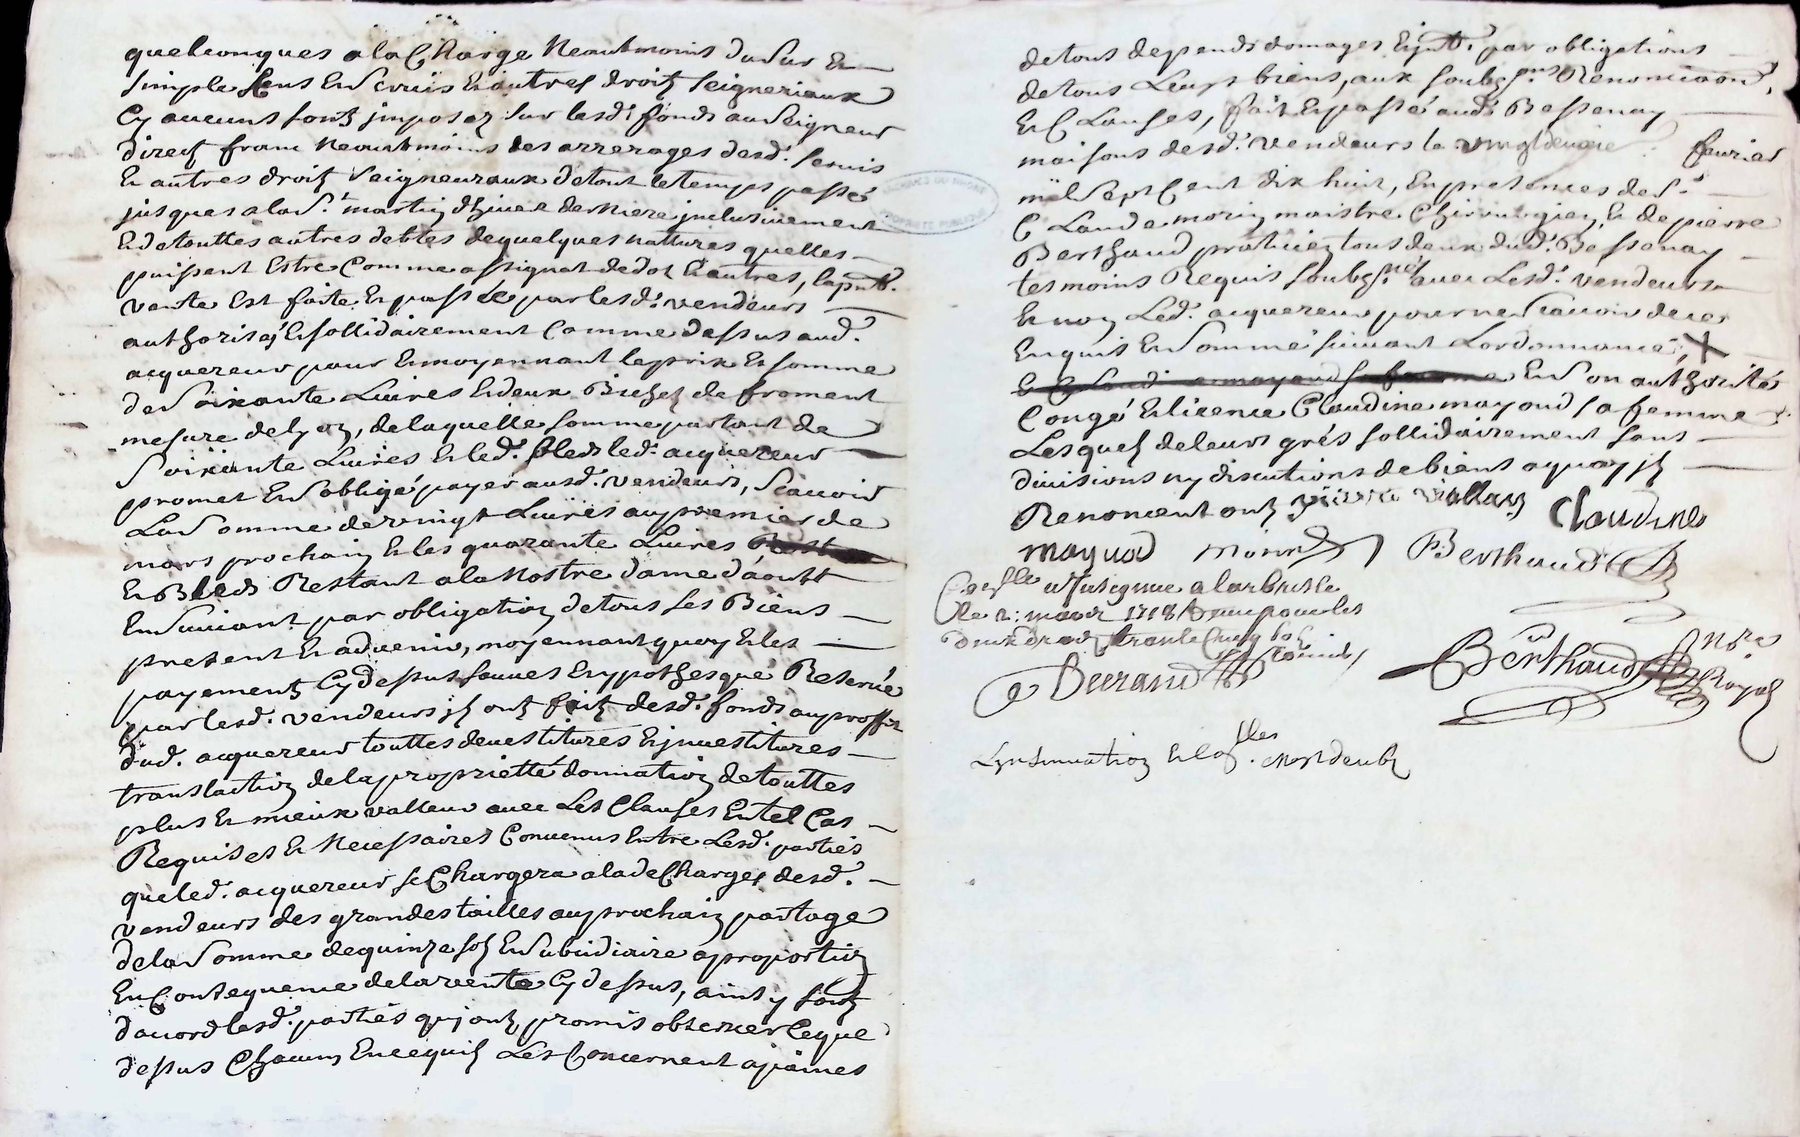 quelconques a la Charge Neantmoins du Sur En
simple Cens En Servis & autres droitz seigneriaux
Cy aucuns sontz jmposez sur lesd. fonds au Seigneur
direct franc Neantmoins des arrerages desd. servis
& autres droitz Seigneuraux de tout le temps passé
jusques a la St. martin d'hiver derniere jnclusivement
& de touttes autres debtes de quelques nattures quelles
puissent Estre Comme assignat de dot & autres, la pnte.
vente Est faite & passée par lesd. vendeurs
authorisés & sollidairement Comme dessus aud.
acquereur pour & moyennant le prix & somme
de Soixante Livres & deux Bichez de froment
mesure de lyon, de laquelle somme partant de
Soixante Livres & led. bled led. acquereur
promet & s'obligé payer ausd. vendeurs, scavoir
La Somme de vingt Livres au premier de
mars prochain & les quarante Livres
& Bleds Restant a la Nostre dame d'aoust
Ensuivant par obligation de tous ses Biens
present & advenir, moyennant quoy & les
payementz Cy dessus sauves & hypotheque Reservée
par lesd. vendeurs jlz ontz faitz desd. fonds au proffit
dud. acquereur touttes devestitures & jnvestitures
translaction de la proprietté donnation de touttes
plus & mieux valleur avec Les Clauses En tel Cas
Requises & Necessaires Convenus Entre Lesd. parties
que led. acquereur se Chargera a la deCharge desd.
vendeurs des grandes tailles au prochain partage
de la Somme de quinze solz & subsidiaire a proportion
En Consequence de la vente Cy dessus, ainsy sontz
d'acord lesd. parties qui ontz promis observer Ceque
dessus Chacuns En ce quilz Les Concernent a paines
de tous depends domages & jnts. par obligations
de tous Leurs biens, aux soubzons. Renonciaons.
& Clauses, fait & passé aud. Bessenay
maisons desd. vendeurs le vingtdeuxie. fevrier
mil Sept Cent dix huit, En presences de Sr.
Claude morin maistre Chirurgien & de pierre
Berthaud praticien tous deux dud. Bessenay
tesmoins Requis soubzsnés. avec Lesd. vendeurs
& non Led. acquereur pour ne Scavoir de ce
Enquis & Sommé suivant Lordonnance, X
& En son authorité
Congé & licence Claudine mayoud sa femme
Lesquelz de leurs grés sollidairement sans
divisions ny discutions de biens a quoy jlz
Renoncent ontz pierre viallon Claudine
mayoud morin P. Berthaud
Conllé. & Insignué a larbresle
le 2: mars 1718 Receu pour les
deux droitz trante Cinq solz
Durand Commis
Berthaud Nore.
Royal
Lynsinuation & le